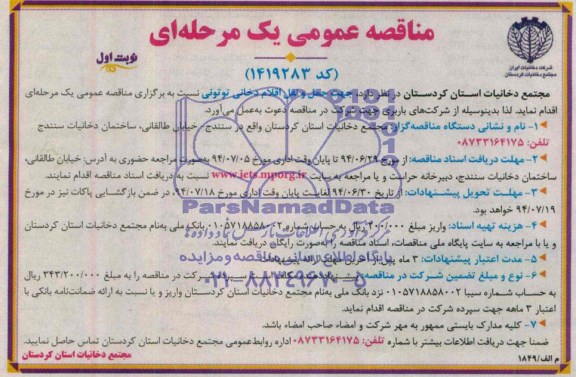 مناقصه عمومی یک مرحله‌ای
نوبت اول
(کد ۱۴۱۹۲۸۳)
شرکت دخانیات ایران
مجتمع دخانیات کردستان
مجتمع دخانیات استان کردستان در نظر دارد، جهت حمل و نقل اقلام دخانی توتونی نسبت به برگزاری مناقصه عمومی یک مرحله‌ای
اقدام نماید. لذا بدینوسیله از شرکت‌های باربری جهت شرکت در مناقصه دعوت به‌عمل می‌آورد.
۱- نام و نشانی دستگاه مناقصه‌گزار: مجتمع دخانیات استان کردستان واقع در سنندج - خیابان طالقانی، ساختمان دخانیات سنندج
تلفن: ۰۸۷۳۳۱۶۴۱۷۵
۲- مهلت دریافت اسناد مناقصه: از مورخ ۹۴/۰۶/۲۹ تا پایان وقت اداری مورخ ۹۴/۰۷/۰۵ به‌صورت مراجعه حضوری به آدرس: خیابان طالقانی،
ساختمان دخانیات سنندج، دبیرخانه حراست و یا مراجعه به سایت www.iets.mporg.ir نسبت به دریافت اسناد مناقصه اقدام نمایند.
۳- مهلت تحویل پیشنهادات: از تاریخ ۹۴/۰۶/۳۰ لغایت پایان وقت اداری مورخ ۹۴/۰۷/۱۸، در ضمن بازگشایی پاکات نیز در مورخ
۹۴/۰۷/۱۹ خواهد بود.
۴- هزینه تهیه اسناد: واریز مبلغ ریال به حساب شماره بانک ملی به‌نام مجتمع دخانیات استان کردستان
و یا با مراجعه به سایت پایگاه ملی مناقصات، اسناد مناقصه را به‌صورت رایگان دریافت نمایند.
۵- مدت اعتبار پیشنهادات: ۳ ماه
۶- نوع و مبلغ تضمین شرکت در مناقصه: شرکت در مناقصه را به مبلغ ۳۴۳/۲۰۰/۰۰۰ ریال
به حساب شماره سیبا ۰۱۰۵۷۱۸۸۵۸۰۰۲ نزد بانک ملی به‌نام مجتمع دخانیات استان کردستان واریز و یا نسبت به ارائه ضمانت‌نامه بانکی با
اعتبار ۳ ماهه جهت سپرده شرکت در مناقصه اقدام نماید.
۷- کلیه مدارک بایستی ممهور به مهر شرکت و امضاء صاحب امضاء باشد.
ضمنا جهت دریافت اطلاعات بیشتر با شماره تلفن: ۰۸۷۳۳۱۶۴۱۷۵ اداره روابط‌عمومی مجتمع دخانیات استان کردستان تماس حاصل نمایید.
م الف/۱۸۴۹
مجتمع دخانیات استان کردستان
ParsNamadData
پایگاه اطلاع رسانی مناقصه و مزایده
۰۲۱-۸۸۳۴۹۶۷۰-۵